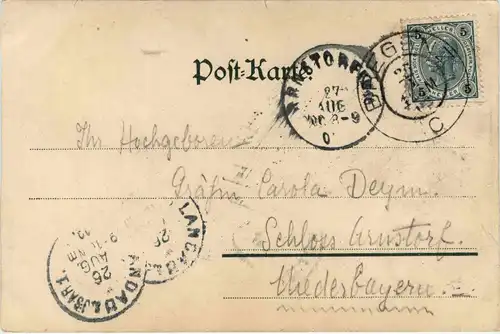 Post-Karte
5 5
5 5
ARNSTORF
27
AUG
8-9
Ihr Hochgeboren
Gräfin Carola Deym
Schloss Arnstorf
Niederbayern
LANDAU
LANDAU a. ISAR 1.
26
AUG